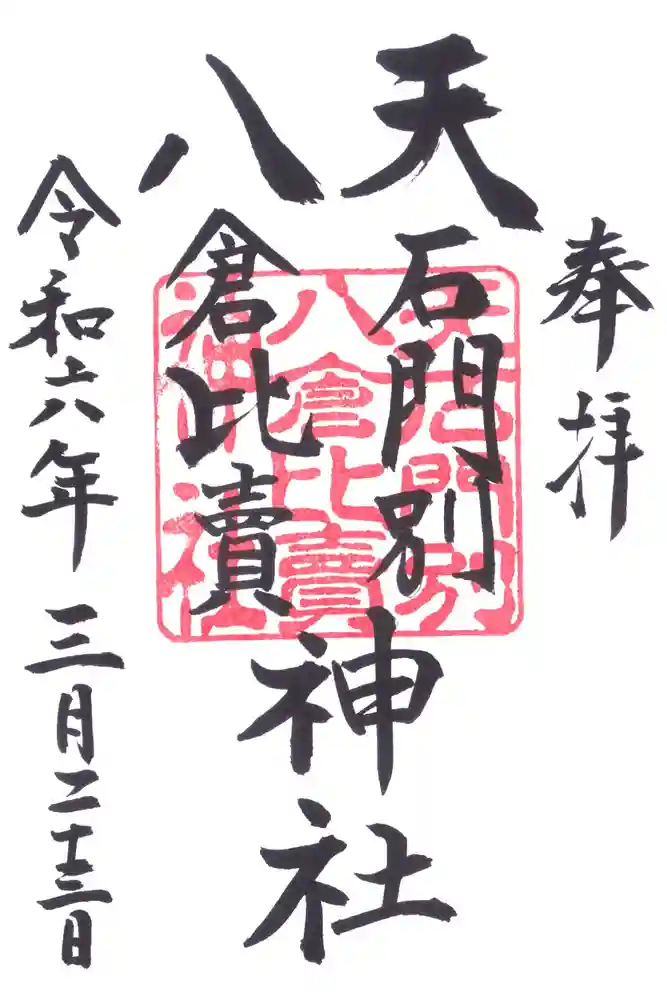 奉拝
天石門別
八倉比賣
神社
令和六年三月二十三日
天石門別
八倉比賣
神社